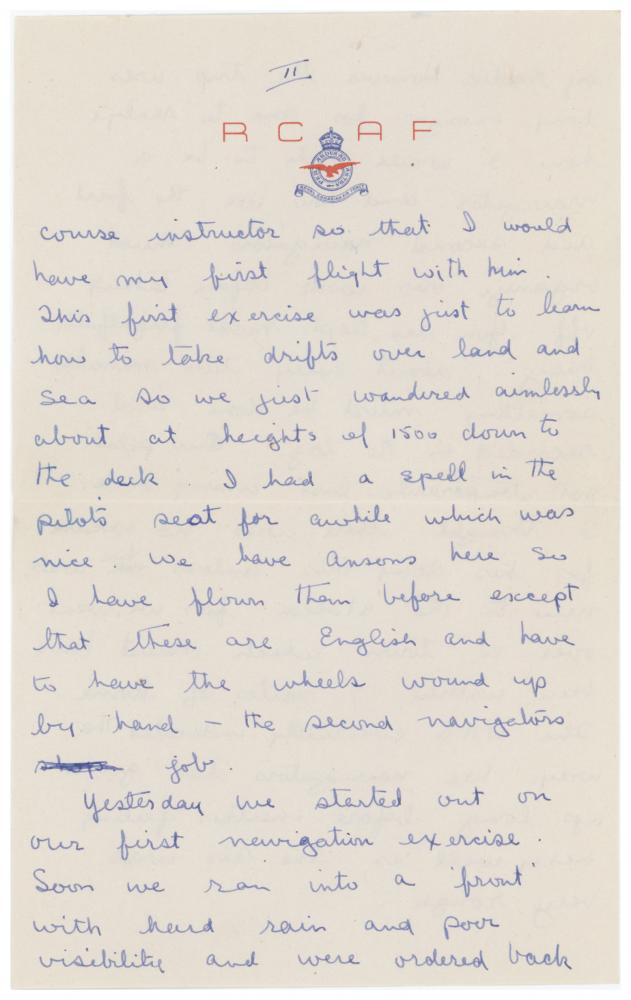 II
RCAF
PER ARDUA AD ASTRA
ROYAL CANADIAN AIR FORCE
course instructor so that I would
have my first flight with him.
This first exercise was just to learn
how to take drifts over land and
sea so we just wandered aimlessly
about at heights of 1500 down to
the deck. I had a spell in the
pilots seat for awhile which was
nice We have Ansons here so
I have flown them before except
that these are English and have
to have the wheels wound up
by hand – the second navigators
job.
Yesterday we started out on
our first navigation exercise.
Soon we ran into a 'front'
with heavy rain and poor
visibility and were ordered back